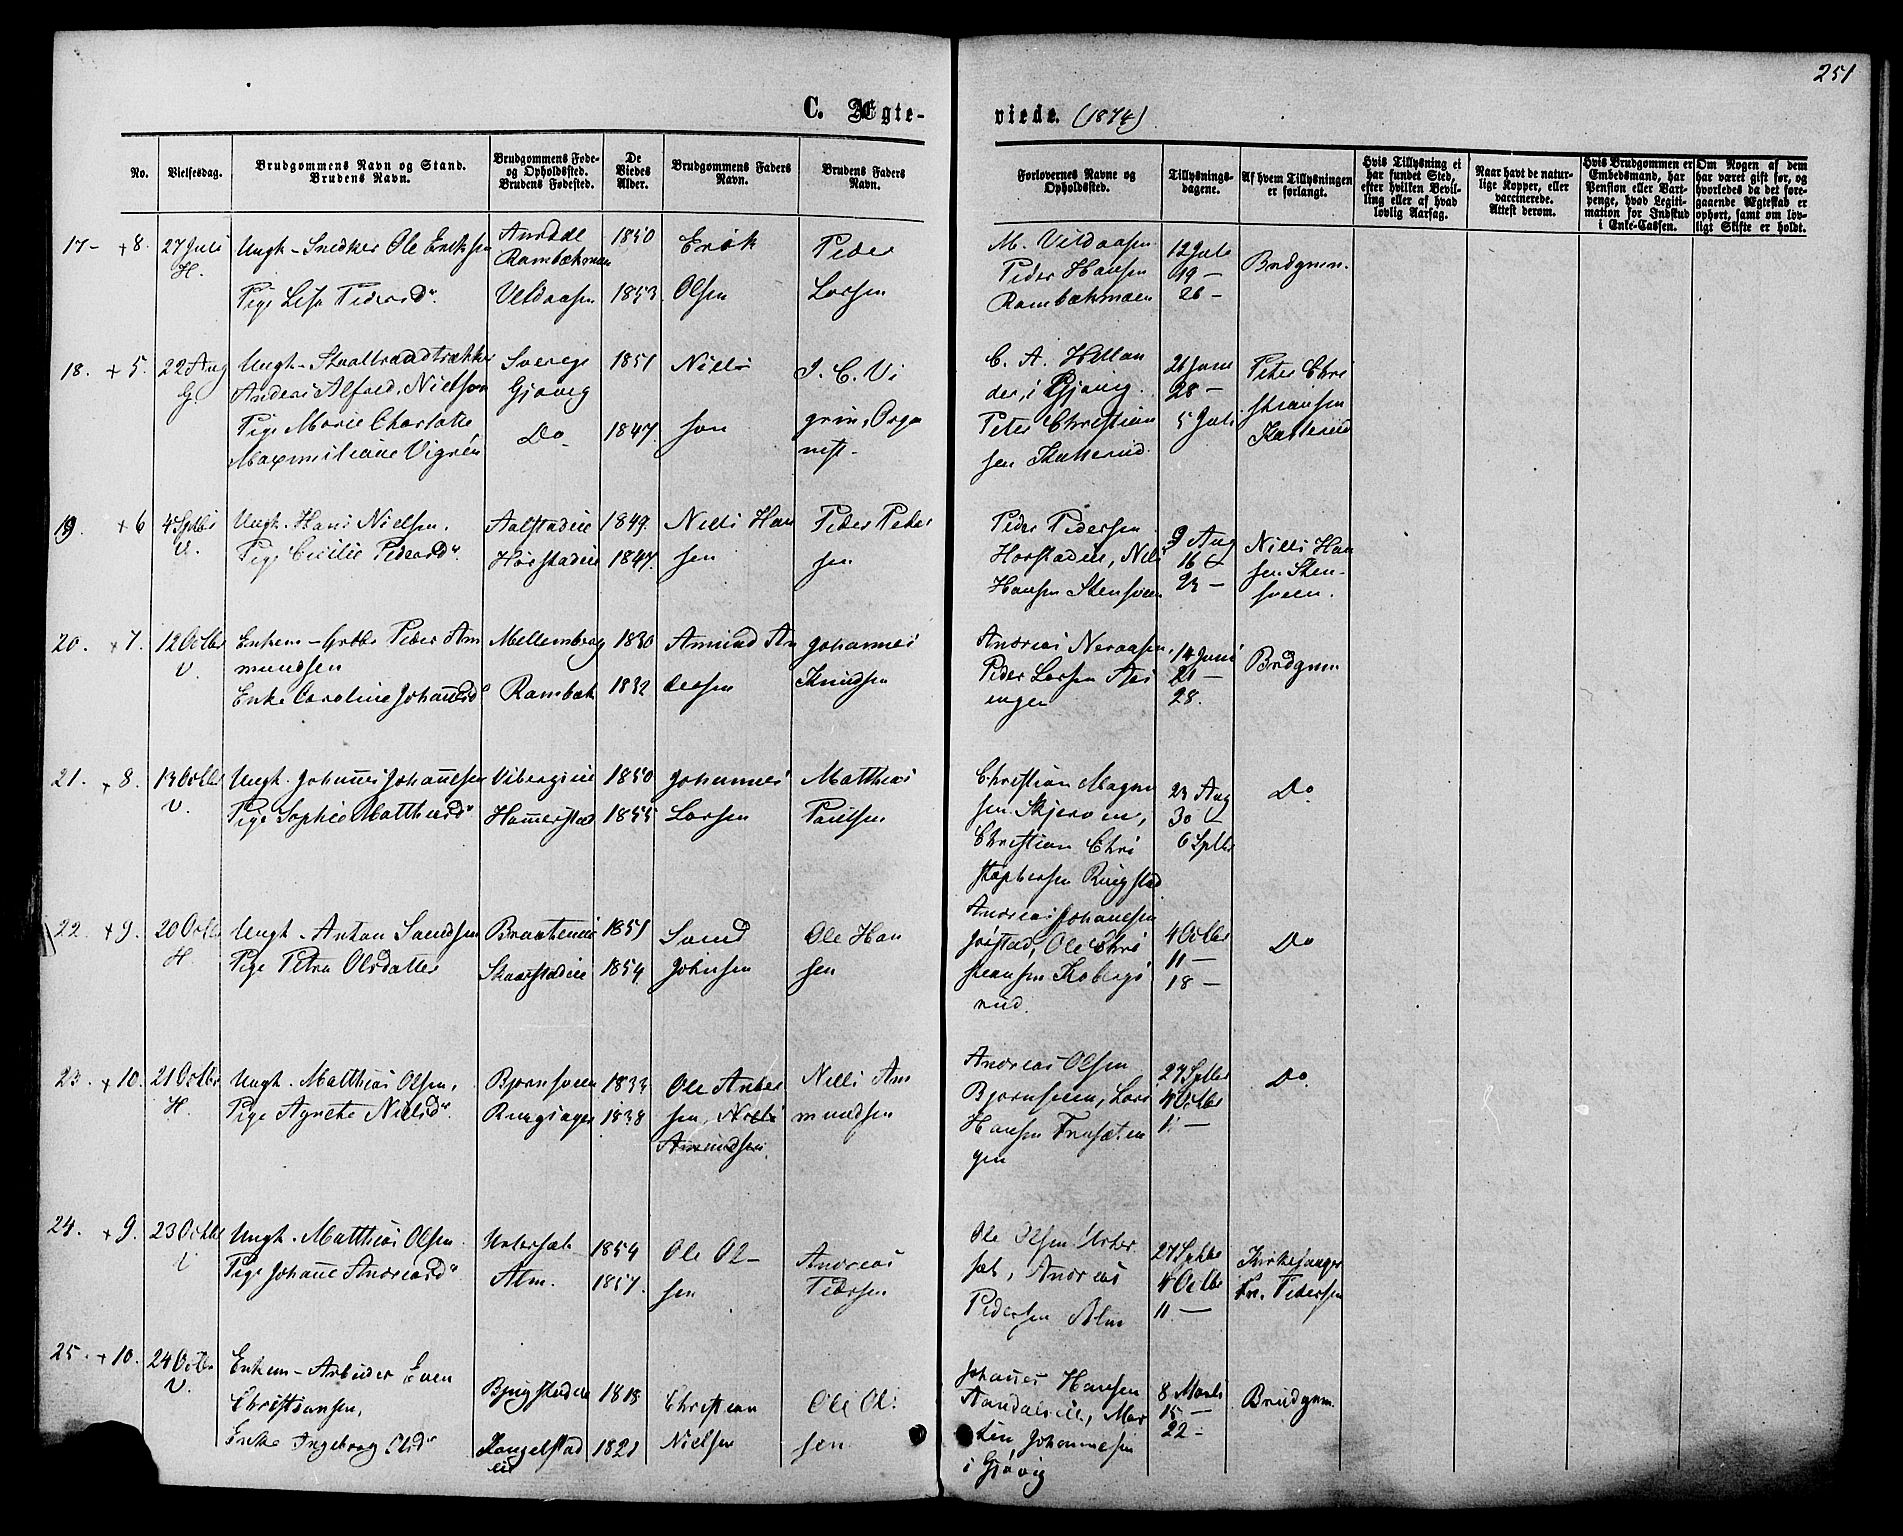 251
C. Ægte-
viede. (1874)
No.
Vielsesdag.
Brudgommens Navn og Stand.
Brudens Navn.
Brudgommens Føde-
og Opholdssted.
Brudens Fødested.
De
Viedes
Alder.
Brudgommens Faders
Navn.
Brudens Faders
Navn.
Forlovernes Navne og
Opholdssted.
Tillysnings-
dagene.
Af hvem Tillysningen
er forlangt.
Hvis Tillysning ei
har fundet Sted,
efter hvilken Bevil-
ling eller af hvad
lovlig Aarsag.
Naar havt de natur-
lige Kopper, eller
vaccinerede.
Attest derom.
Hvis Brudgommen er
Embedsmand, har
Pension eller Vart-
penge, hvad Legiti-
mation for Indskud
i Enke-Cassen.
Om Nogen af dem
har været gift før, og
hvorledes da det fore-
gaaende Ægteskab er
ophørt, samt om lov-
ligt Skifte er holdt.
17- +8. 27 Juli
H.
Ungk. - Snedker Ole Eriksen
Pige Lisa Pedersd.
Rambækmoen
Veldaasen
1850
1853
Erik
Olsen
Peder
Larsen
M. Veldaasen
Peder Hansen
Rambækmoen
12 Juli
19 -
26 -
Brudgmen.
18. +5. 22 Aug
G.
Ungk. - Staaltraadtrækker
Anders Alfred Nielson
Pige Marie Charlotte
Maximiliane Vigrén
Sverige
Gjøvig
Do
1851
1847.
Niels
son
J. C. Vi
grin, Orga
nist.
C. A. Hellan
der, i Gjøvig
Peter Christian
sen Kallerud.
21 Juni
28 -
5 Juli
Peter Chri
stiansen
Kallerud
19. +6 4 Septbr
V.
Ungk. Hans Nielsen.
Pige Cicilie Pedersd.
Aalstadeie
Horstadeie
1849.
1847.
Niels Han
sen
Peder Peder
sen
Peder Pedersen
Horstadeie, Niels
Hansen Stensveen
9 Aug
16 -
23 -
Niels Han
sen Sten-
sveen.
20. +7. 12 Octbr
V.
Enkem. - Peder Am
mundsen
Enke Caroline Johannesd.
Mellemborg
Rambæk
1830
1832
Amund An
dersen
Johannes
Knudsen
Andreas Neraasen,
Peder Larsen Aas
engen
14 Juni
21 -
28.
Brudgmen
21. +8. 13 Octbr
V.
Ungk. Johannes Johannesen
Pige Sophie Matthisd.
Vibergseie
Hammerstad
1850
1855
Johannes
Larsen
Matthias
Paulsen
Christian Magnu
sen Skjerven,
Christian Chri
stophersen Ringstad
23 Aug
30 -
6 Septbr
Do
22. +9. 20 Octbr
H.
Ungk. - Anton Svendsen
Pige Petra Olsdatter
Braateneie
Skaarstadeie
1851
1854.
Svend
Johnsen
Ole Han
sen
Andreas Johannesen
Joistad, Ole Chri
stiansen Kobergs
rud.
4 Octbr
11 -
18 -
Do
23. +10. 21 Octbr
H.
Ungk. Matthias Olsen,
Pige Agnethe Nielsd.
Bjørnsveen
Ringsager
1833
1838
Ole Ander
sen, Niels
Amundsen.
Niels Am
mundsen
Andreas Olsen
Bjørnsveen, Lars
Hansen
gen
27 Septbr
4 Octbr
11 -
Do.
24. +9. 23 Octbr
Ungk. Matthias Olsen.
Pige Johanne Andreasd.
Alm.
1854
1857.
Ole Ol-
sen
Andreas
Pedersen
Ole Olsen
Andreas
Pedersen Alm
27 Septbr
4 Octbr
11 -
Kirkesanger
Fr. Pedersen
25. +10. 24 Octbr
V.
Enkem. - Arbeider Even
Christiansen,
Enke Ingeborg Olsd.
Bjugstadeie
eie
1818
1821
Christian
Nielsen
Ole Ol
sen
Johannes Hansen
Aandalseie, Mar
tin Johannesen
i Gjøvig
8 Marts
15 -
22 -
Brudgmen.